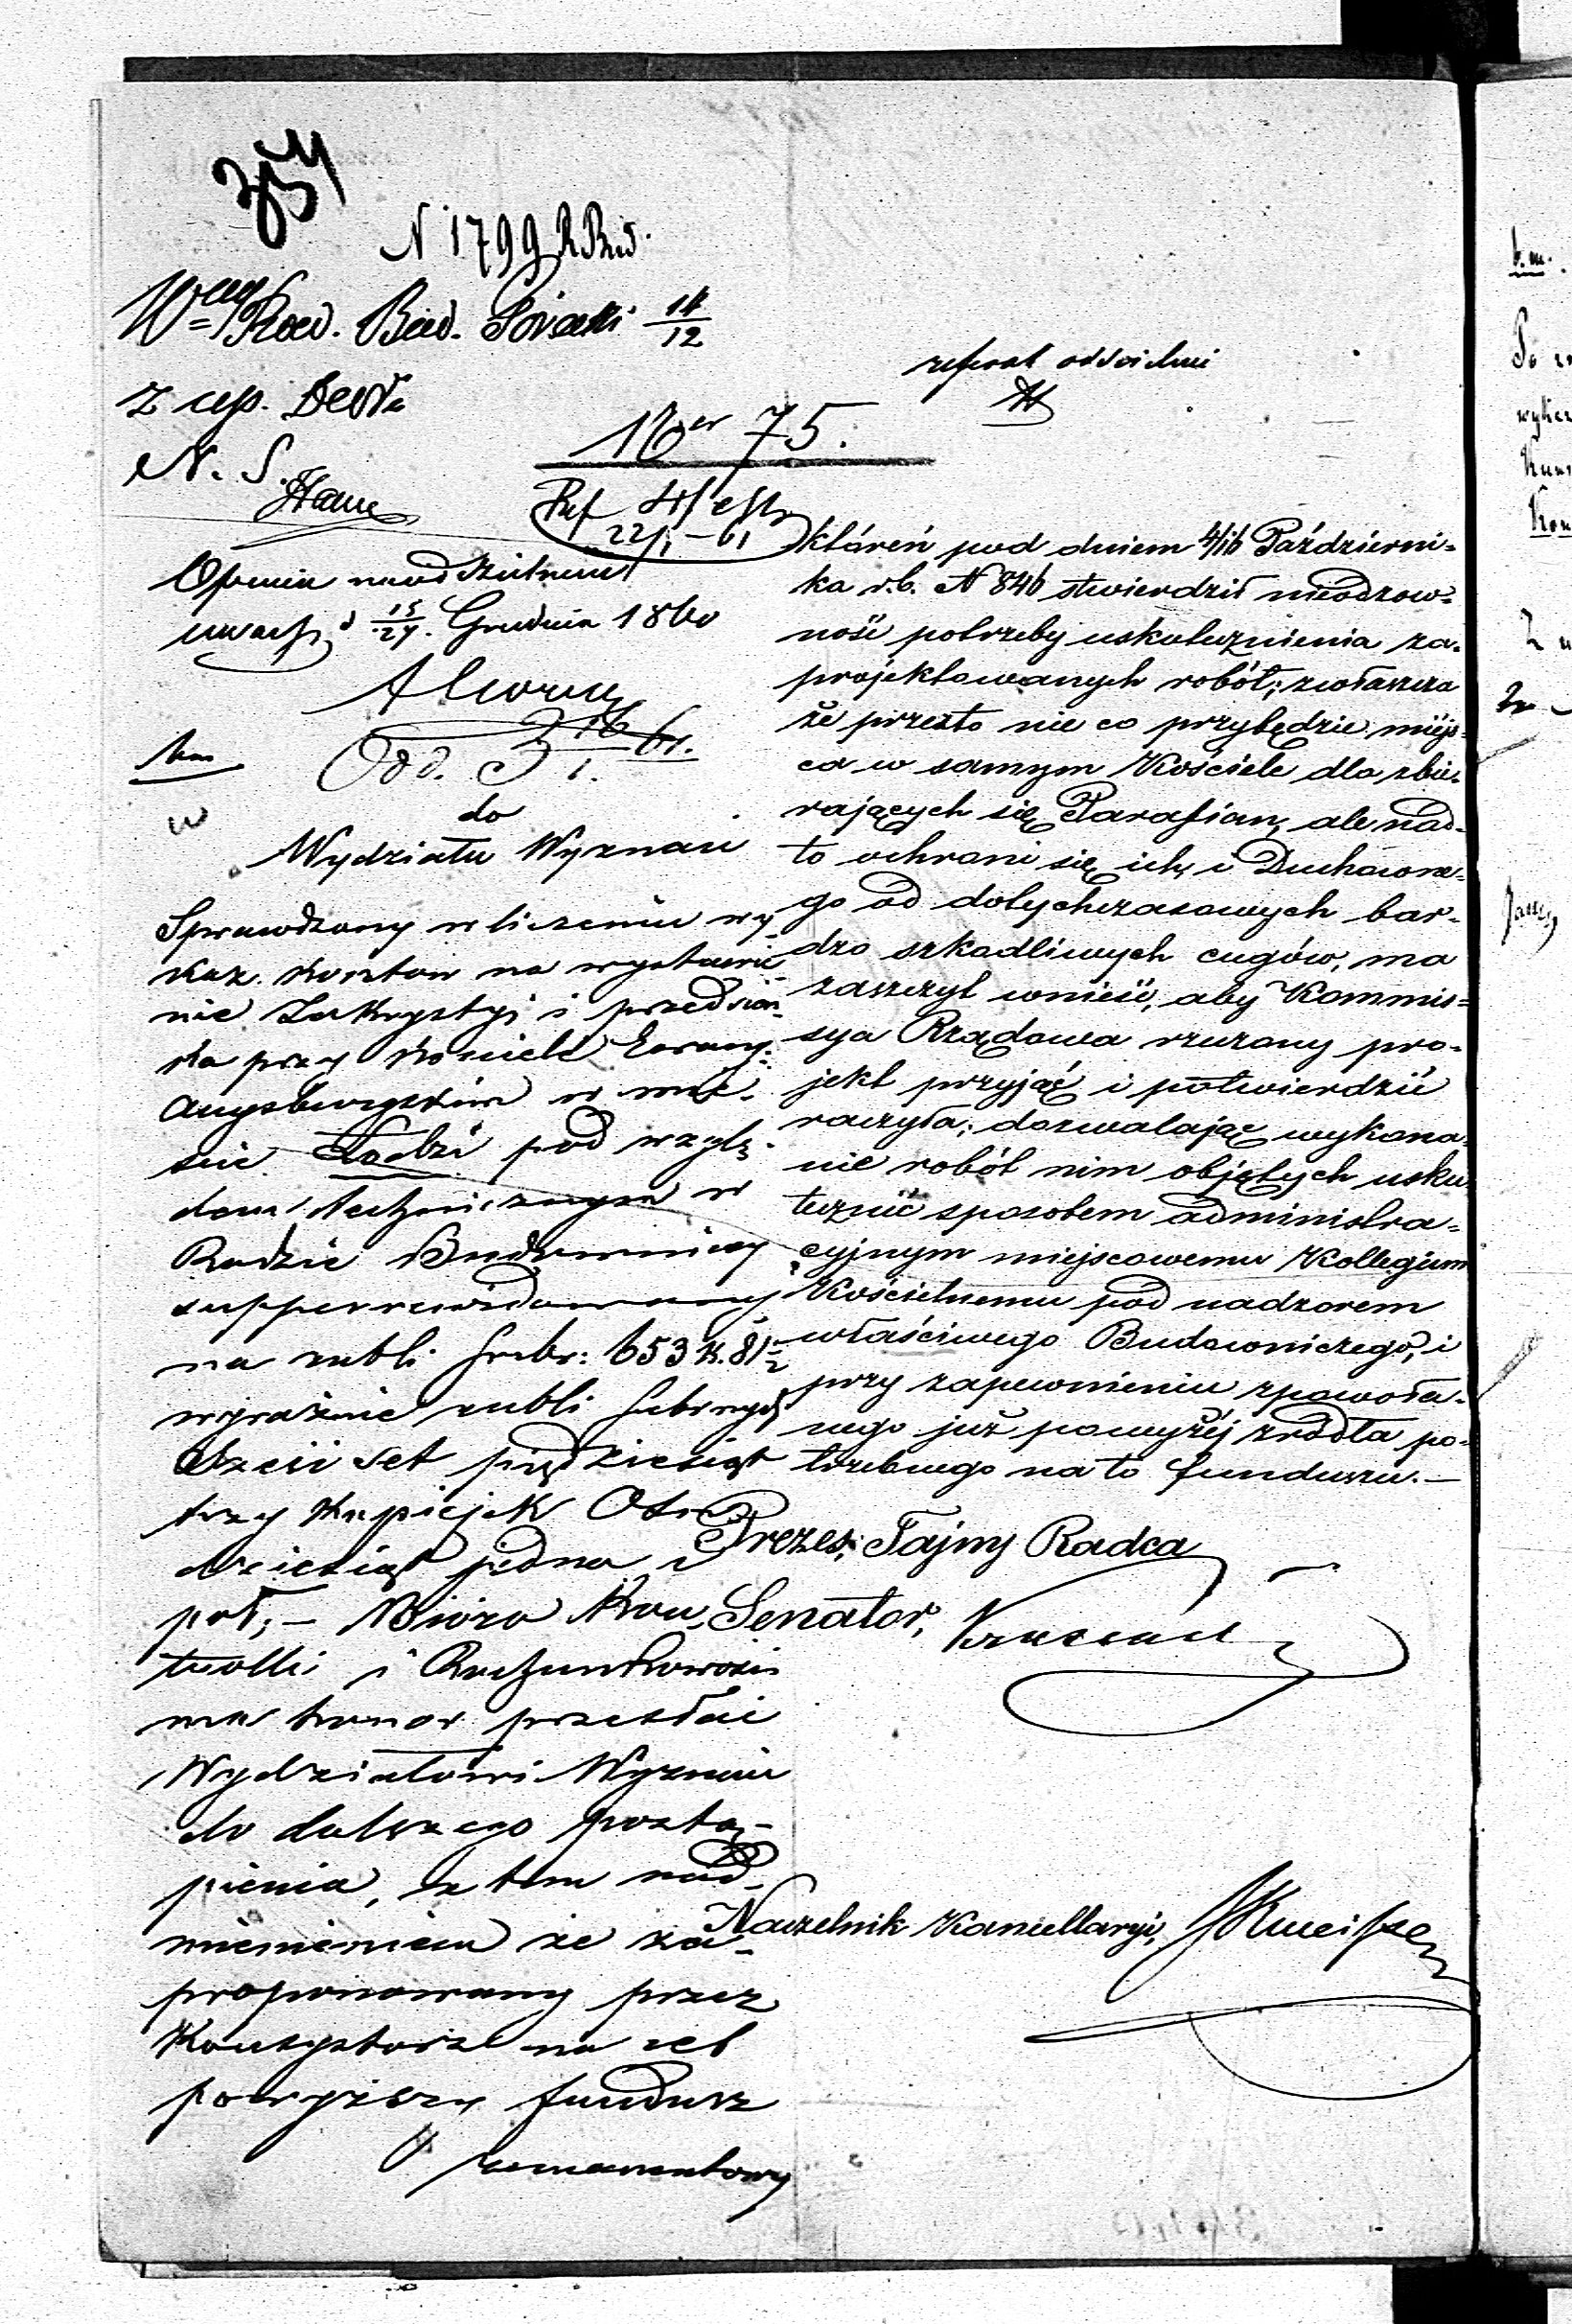 354
N 1799 R Bud.
14/12
z up.
N. S.
referat oddzielnie
16er 75.
Ref
22/1 - 61
Opinia
uwag d 15/27. Grudnia 1860
Odd. 16/1 61.
do
Wydziału Wyznań
Sprawdzony w liczeniu wy-
kaz kosztów na wystawie-
nie Zakrystyi i przedsion-
ka przy kościele Ewang:
Augsburgskim w mie-
ście Łodzi pod wzglę-
dem technicznym w
Radzie Budowniczej
superrewidowany
na rubli srebr: 653 k. 81 1/2
wyraźnie rubli srebrnych
sześć set pięćdziesiąt
trzy kopiejek Ośm-
dziesiąt jedna i
pół; – Bióro Kon-
trolli i Rachunkowości
ma honor przesłać
Wydziałowi Wyznań
do dalszego postą-
pienia, z tem nad-
mienieniem że za-
proponowany przez
Konsystorz na cel
powyższy fundusz
remanentowy
któreń pod dniem 4/16 Październi-
ka r.b. N 846 stwierdził nieodzow-
ność potrzeby uskutecznienia za-
projektowanych robót; zwłaszcza
że przezto nie co przybędzie miejs-
ca w samym Kościele dla zbie-
rających się Parafian, ale nad-
to ochroni się ich i Duchowne-
go od dotychczasowych bar-
dzo szkodliwych cugów, ma
zaszczyt wnieść, aby Kommis-
sya Rządowa rzeczony pro-
jekt przyjąć i potwierdzić
raczyła; dozwalając wykona-
nie robót nim objętych usku-
tecznić sposobem administra-
cyjnym miejscowemu Kollegium
Kościelnemu pod nadzorem
właściwego Budowniczego, i
przy zapewnieniu zpowoła-
nego już powyżéj źródła po-
trzebnego na to funduszu. –
Prezes, Tajny Radca
Senator,
Naczelnik Kancellaryi,